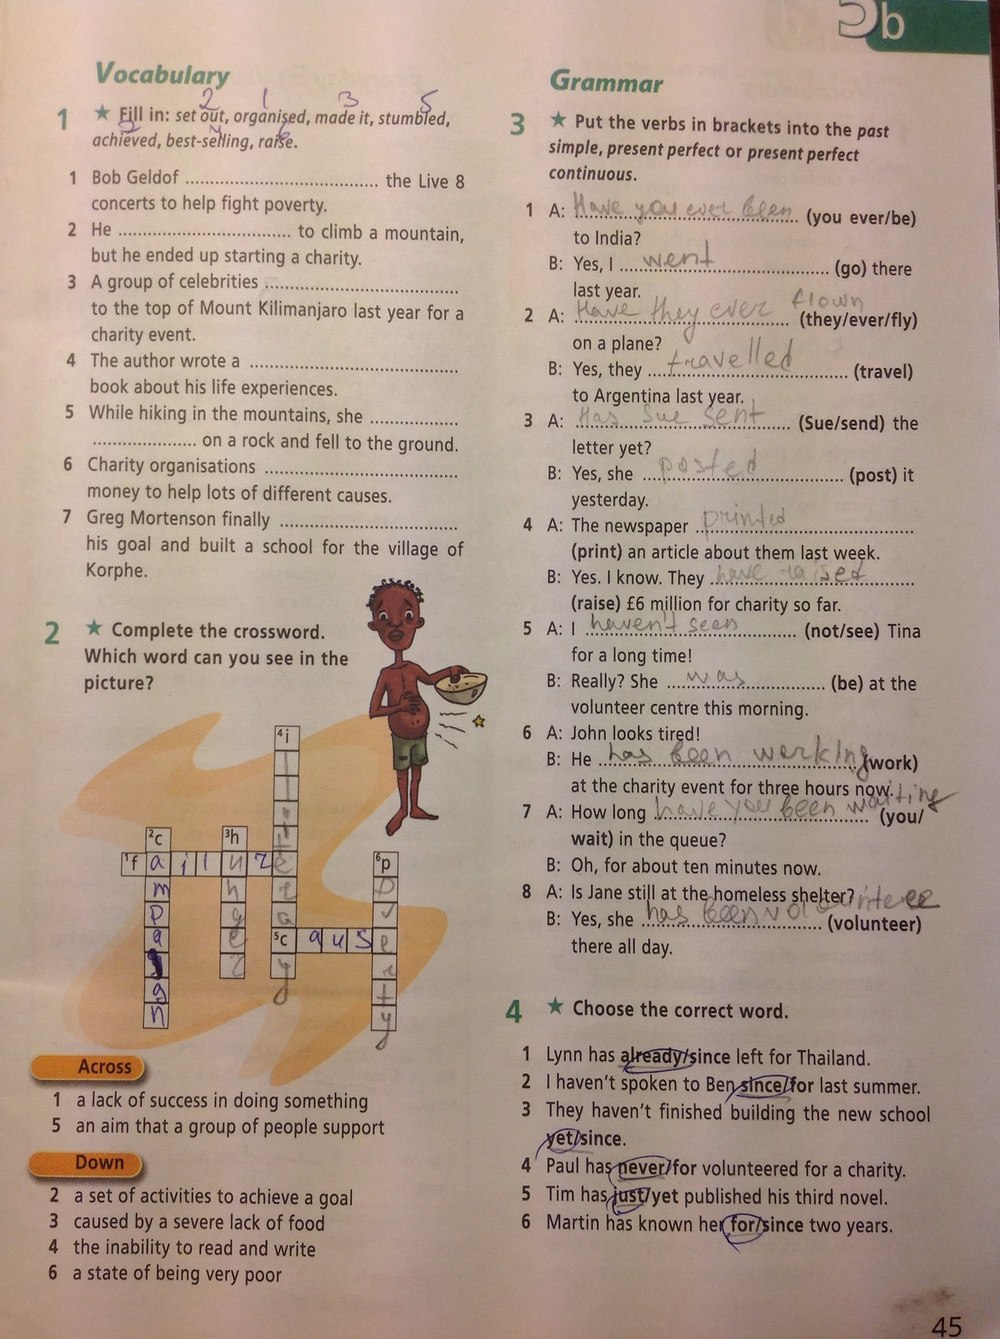 5b
Vocabulary
2 1 3 5
1 ★ Fill in: set out, organised, made it, stumbled,
achieved, best-selling, raise.
1 Bob Geldof ................................... the Live 8
concerts to help fight poverty.
2 He ............................... to climb a mountain,
but he ended up starting a charity.
3 A group of celebrities ...................................
to the top of Mount Kilimanjaro last year for a
charity event.
4 The author wrote a ......................................
book about his life experiences.
5 While hiking in the mountains, she ................
................... on a rock and fell to the ground.
6 Charity organisations ...................................
money to help lots of different causes.
7 Greg Mortenson finally ................................
his goal and built a school for the village of
Korphe.
2 ★ Complete the crossword.
Which word can you see in the
picture?
4 i
2 c
3 h
1 f a i l u r e
6 p
5 c a u s e
Across
1 a lack of success in doing something
5 an aim that a group of people support
Down
2 a set of activities to achieve a goal
3 caused by a severe lack of food
4 the inability to read and write
6 a state of being very poor
Grammar
3 ★ Put the verbs in brackets into the past
simple, present perfect or present perfect
continuous.
1 A: Have you ever been (you ever/be)
to India?
B: Yes, I went (go) there
last year.
2 A: Have they ever flown (they/ever/fly)
on a plane?
B: Yes, they travelled (travel)
to Argentina last year.
3 A: Has Sue sent (Sue/send) the
letter yet?
B: Yes, she posted (post) it
yesterday.
4 A: The newspaper printed
(print) an article about them last week.
B: Yes. I know. They have raised
(raise) £6 million for charity so far.
5 A: I haven't seen (not/see) Tina
for a long time!
B: Really? She was (be) at the
volunteer centre this morning.
6 A: John looks tired!
B: He has been working (work)
at the charity event for three hours now.
7 A: How long have you been waiting (you/
wait) in the queue?
B: Oh, for about ten minutes now.
8 A: Is Jane still at the homeless shelter?
B: Yes, she has been (volunteer)
there all day.
4 ★ Choose the correct word.
1 Lynn has already/since left for Thailand.
2 I haven't spoken to Ben since/for last summer.
3 They haven't finished building the new school
yet/since.
4 Paul has never/for volunteered for a charity.
5 Tim has just/yet published his third novel.
6 Martin has known her for/since two years.
45